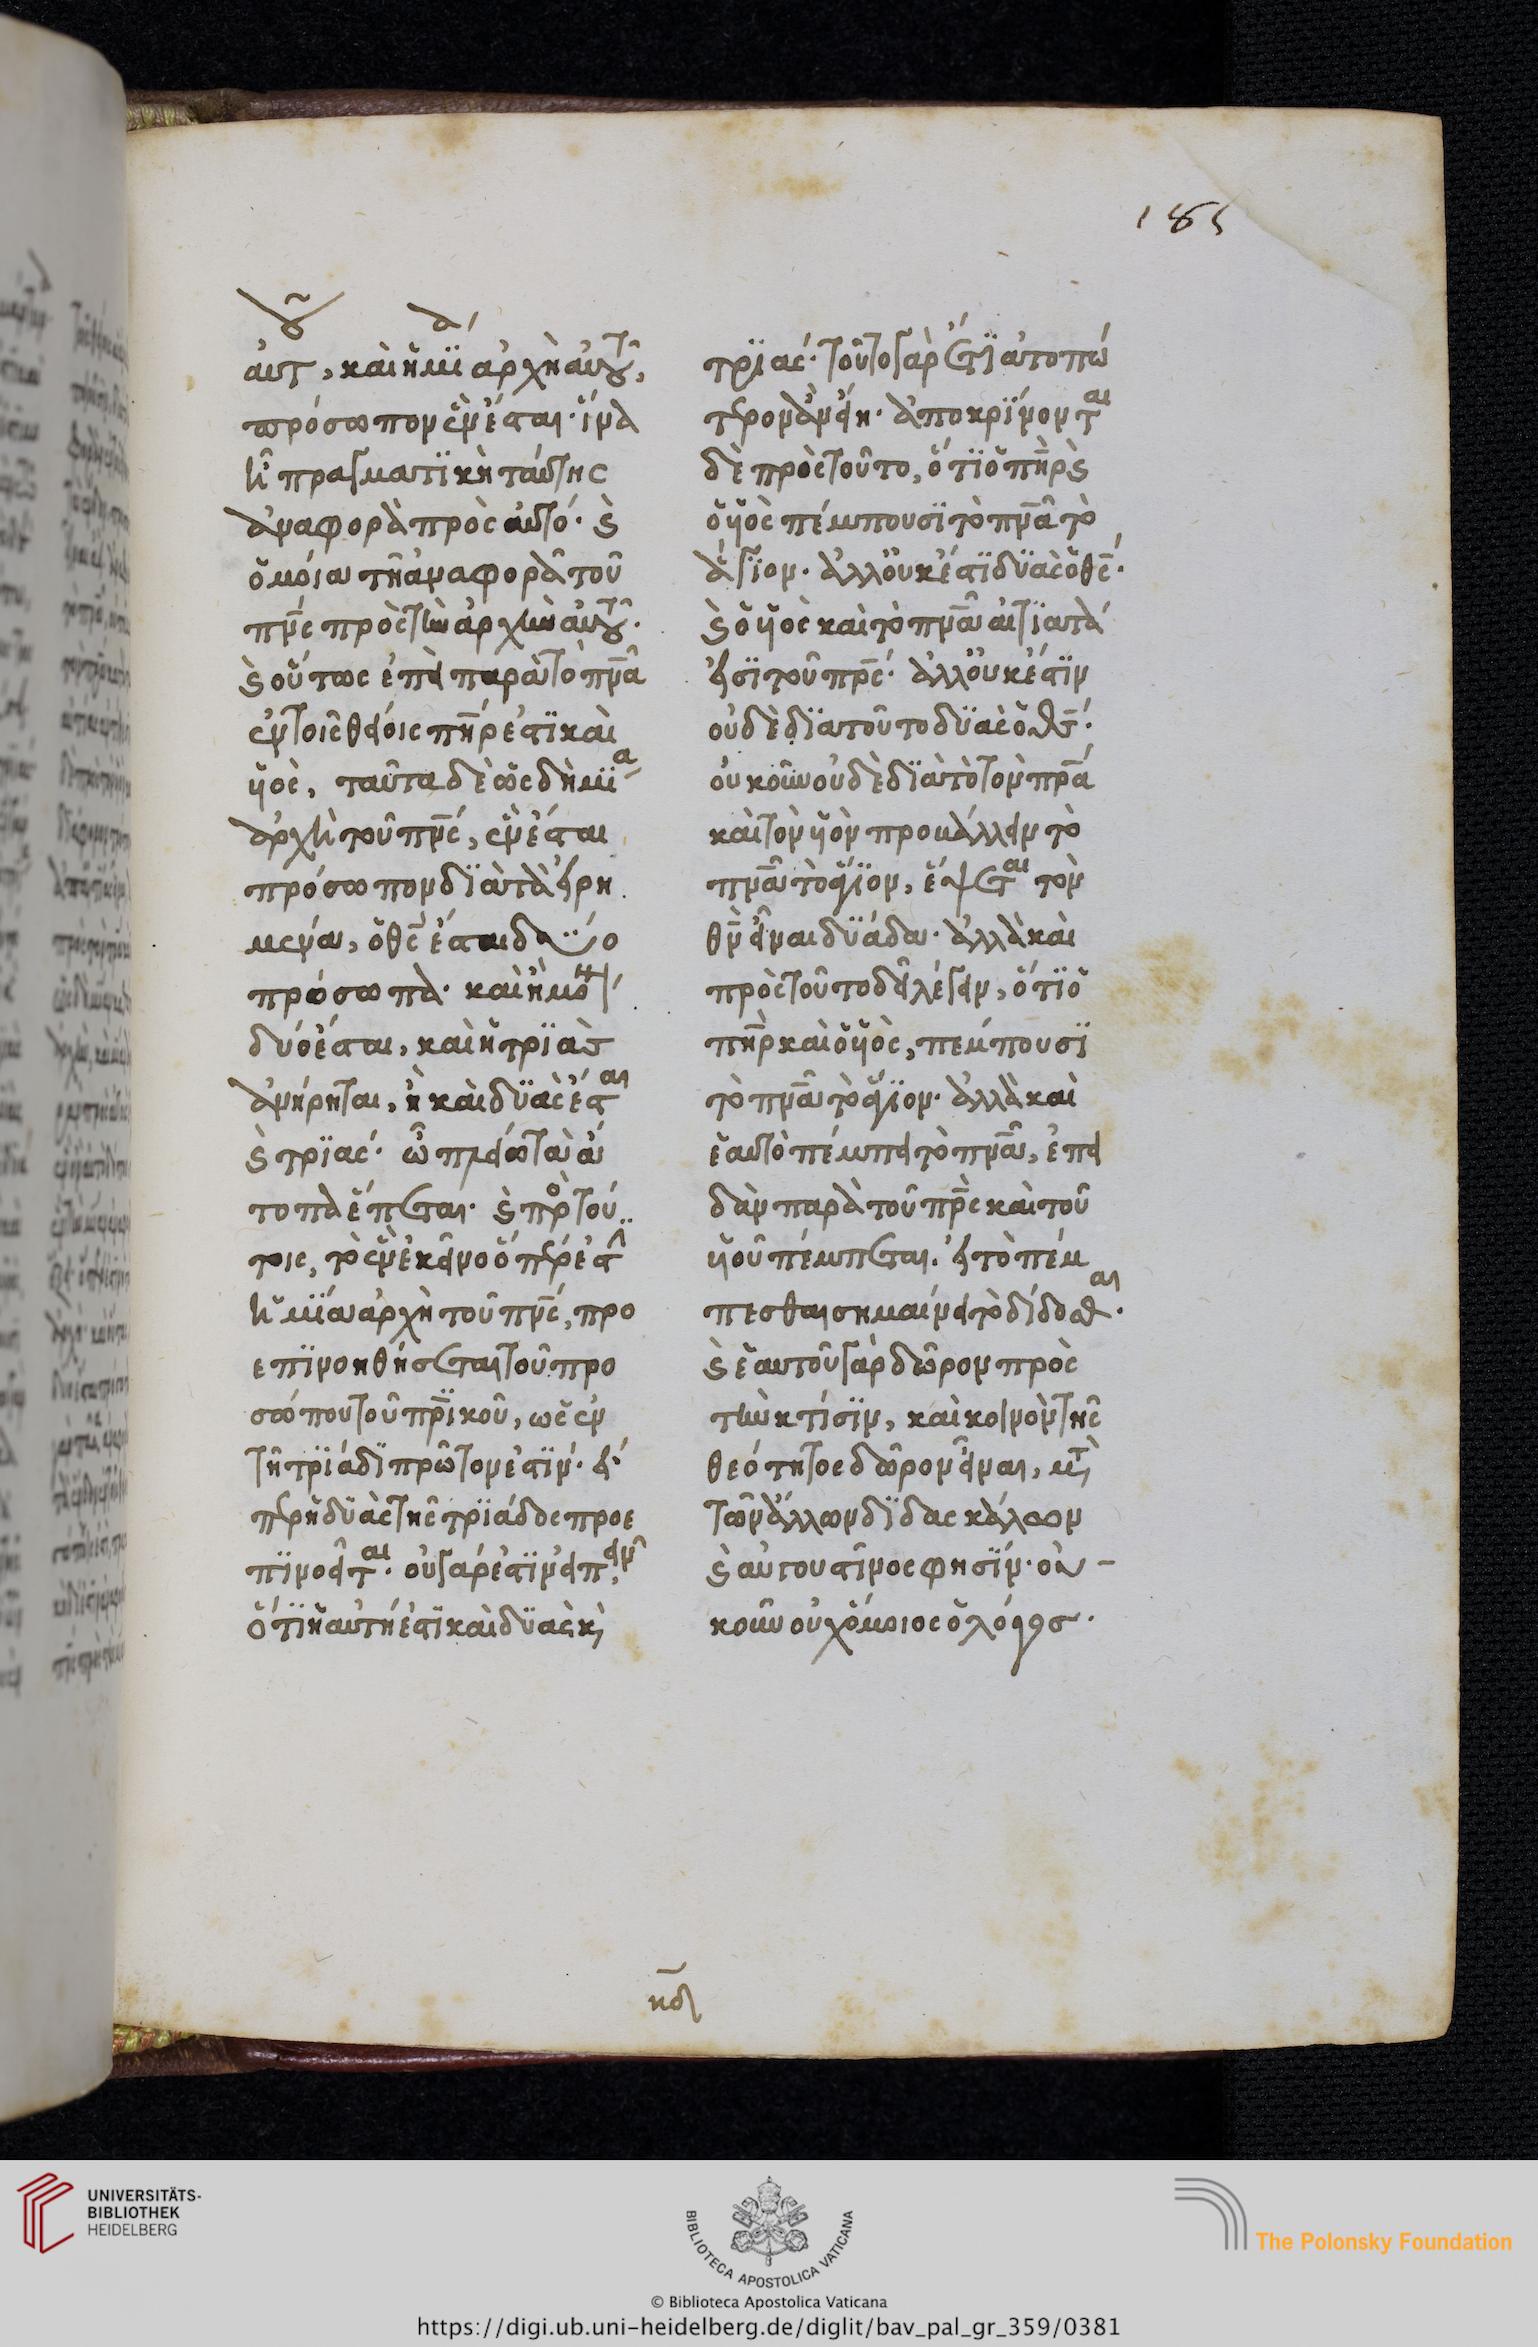 185
αὐτοῦ, καὶ ἡ μία ἀρχὴ αὐτοῦ,
πρόσωπον ἕν ἐσται· ἵνα
ᾖ πραγματϊκὴ ταύτης
ἀναφορὰ πρὸς αὐτό· καὶ
ὁμοία τῇ ἀναφορᾷ τοῦ
πν̅ς πρὸς τὴν ἀρχὴν αὐτοῦ.
καὶ οὕτως ἐπεὶ παρὰ τὸ πν̅α
ἐν τοῖς θείοις πη̅ρ ἐστϊ καὶ
υἱὸς, ταῦτα δὲ ὡς δὴ μία
ἀρχὴ τοῦ πν̅ς, ἕν ἐσται
πρόσωπον δϊὰ τὰ εἰρη
μένα, ὁ θ̅ς ἔσται δύο
πρόσωπα· καὶ ἢ μόνον
δύο ἔσται, καὶ ἡ τρϊὰς
ἀνήρηται, ἢ καὶ δϋὰς ἔσται
καὶ τρϊάς· ᾧ πλείω τὰ ἄ
τοπα ἕπεται· καὶ πρὸ τού
τοις, τὸ ἓν ἐκεῖνο ὅπερ ἐστὶν
ἡ μία ἀρχὴ τοῦ πν̅ς, προ
επϊνοηθήσεται τοῦ προ
σώπου τοῦ πρ̅ικοῦ, ὡς ἐν
τῇ τρϊάδϊ πρῶτον ἐστϊν· εἴ
περ ἡ δϋὰς τῆς τρϊάδος προε
πϊνοεῖται· οὐ γάρ ἐστϊν εἰπεῖν,
ὅτϊ ἡ αὐτή ἐστϊ καὶ δϋὰς καὶ
τρϊάς· τοῦτο γὰρ ἔτϊ ἀτοπώ
τερον ἂν εἴη· ἀποκρϊνονται
δὲ πρὸς τοῦτο, ὅτϊ ὁ πη̅ρ καὶ
ὁ υἱὸς πέμπουσϊ τὸ πν̅α τὸ
ἅγϊον· ἀλλ' οὐκ ἔστϊ δϋὰς ὁ θ̅ς·
καὶ ὁ υἱὸς καὶ τὸ πν̅α αἰτϊατά
εἰσϊ τοῦ πρ̅ς· ἀλλ' οὐκ ἔστϊν
οὐδὲ δϊὰ τοῦτο δϋὰς ὁ θ̅ς·
οὐκοῦν οὐδὲ δϊὰ τὸ τὸν πρ̅α
καὶ τὸν υἱὸν προβάλλειν τὸ
πν̅α τὸ ἅγϊον, ἕψεται τὸν
θ̅ν εἶναι δϋάδα· ἀλλὰ καὶ
πρὸς τοῦτο δεῖ λέγειν, ὅτϊ ὁ
πη̅ρ καὶ ὁ υἱὸς, πέμπουσϊ
τὸ πν̅α τὸ ἅγϊον· ἀλλὰ καὶ
ἑαυτὸ πέμπει τὸ πν̅α, ἐπει
δὰν παρὰ τοῦ πρ̅ς καὶ τοῦ
υἱοῦ πέμπεται. εἰ τὸ πέμ
πεσθαι σημαίνει τὸ δίδοσθαι.
καὶ ἑαυτοῦ γὰρ δῶρον πρὸς
τὴν κτίσϊν, καὶ κοινὸν τῆς
θεότητος δῶρον εἶναι, μετὰ
τῶν ἄλλων δϊδασκάλων
καὶ αὐγουστῖνος φησϊν· οὐ
κοῦν οὐχ ὅμοιος ὁ λόγος.
κδ
UNIVERSITÄTS-
BIBLIOTHEK
HEIDELBERG
BIBLIOTECA APOSTOLICA VATICANA
© Biblioteca Apostolica Vaticana
The Polonsky Foundation
https://digi.ub.uni-heidelberg.de/diglit/bav_pal_gr_359/0381